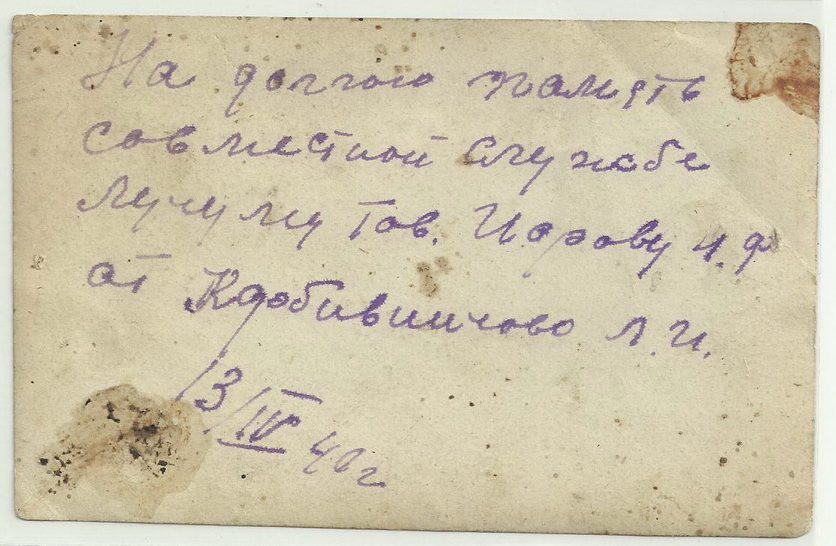 На долгою память
совместной службе
Лучему тов. Иорову И.Ф
от Карбившичово Л.И.
13/IV 40 г